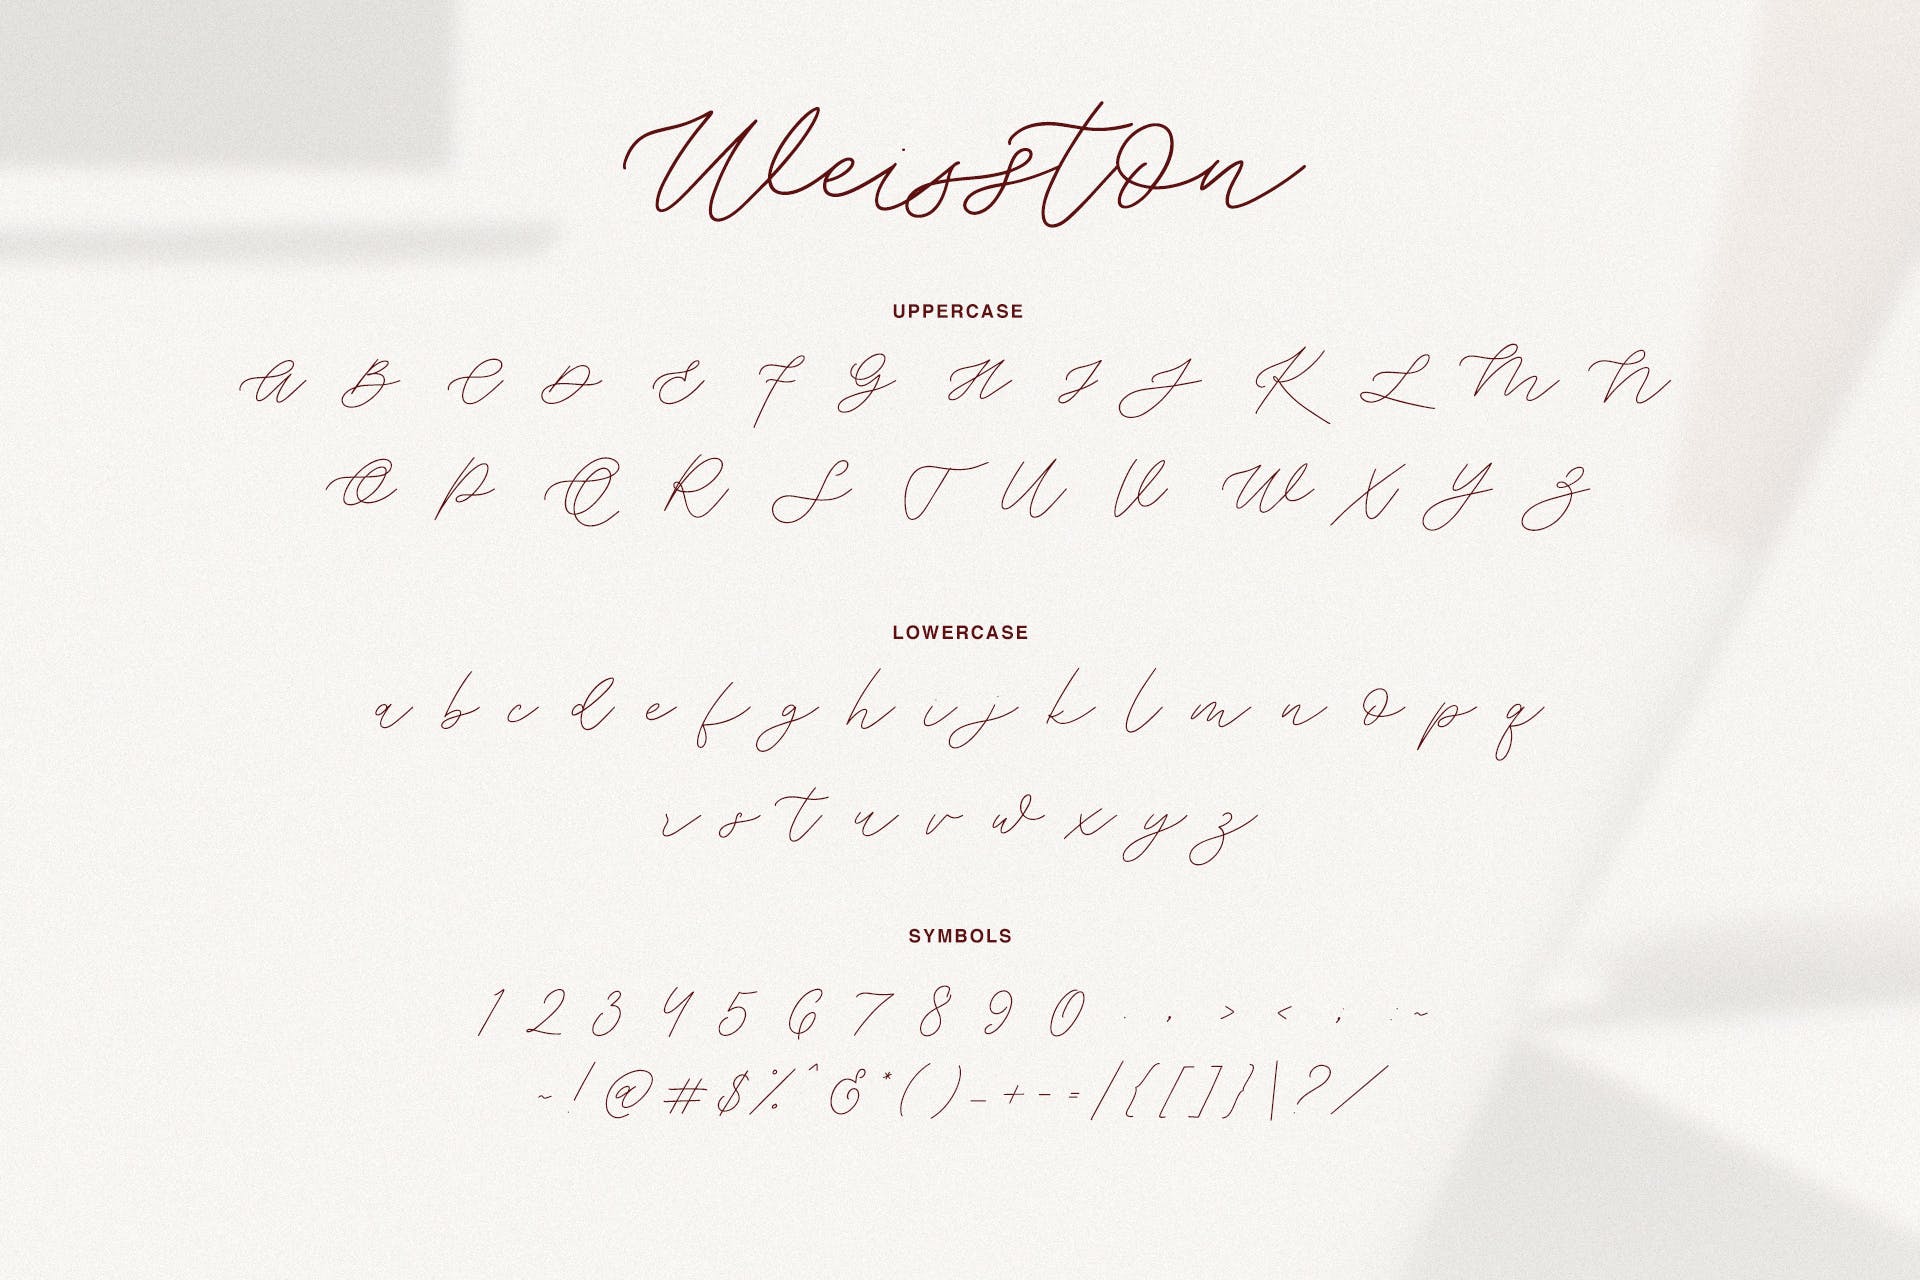 Weisston
UPPERCASE
A B C D E F G H I J K L M N
O P Q R S T U V W X Y Z
LOWERCASE
a b c d e f g h i j k l m n o p q
r s t u v w x y z
SYMBOLS
1 2 3 4 5 6 7 8 9 0 . , > < ; : ~
~ ! @ # $ % ^ & * ( ) _ + - = | { [ ] } \ ? /